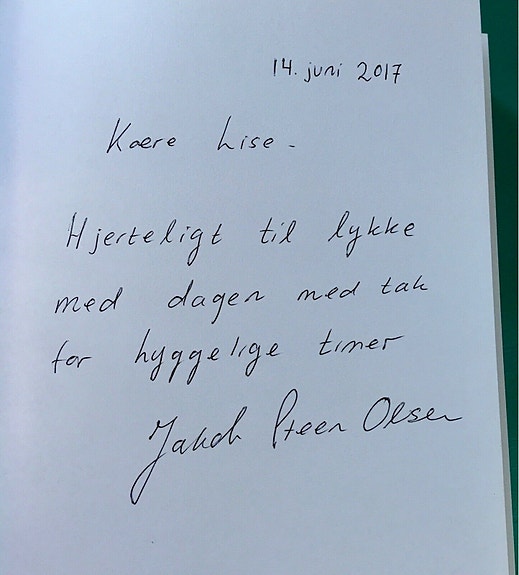 14. juni 2017
Kære Lise -
Hjerteligt til lykke
med dagen med tak
for hyggelige timer
Jakob Steen Olsen